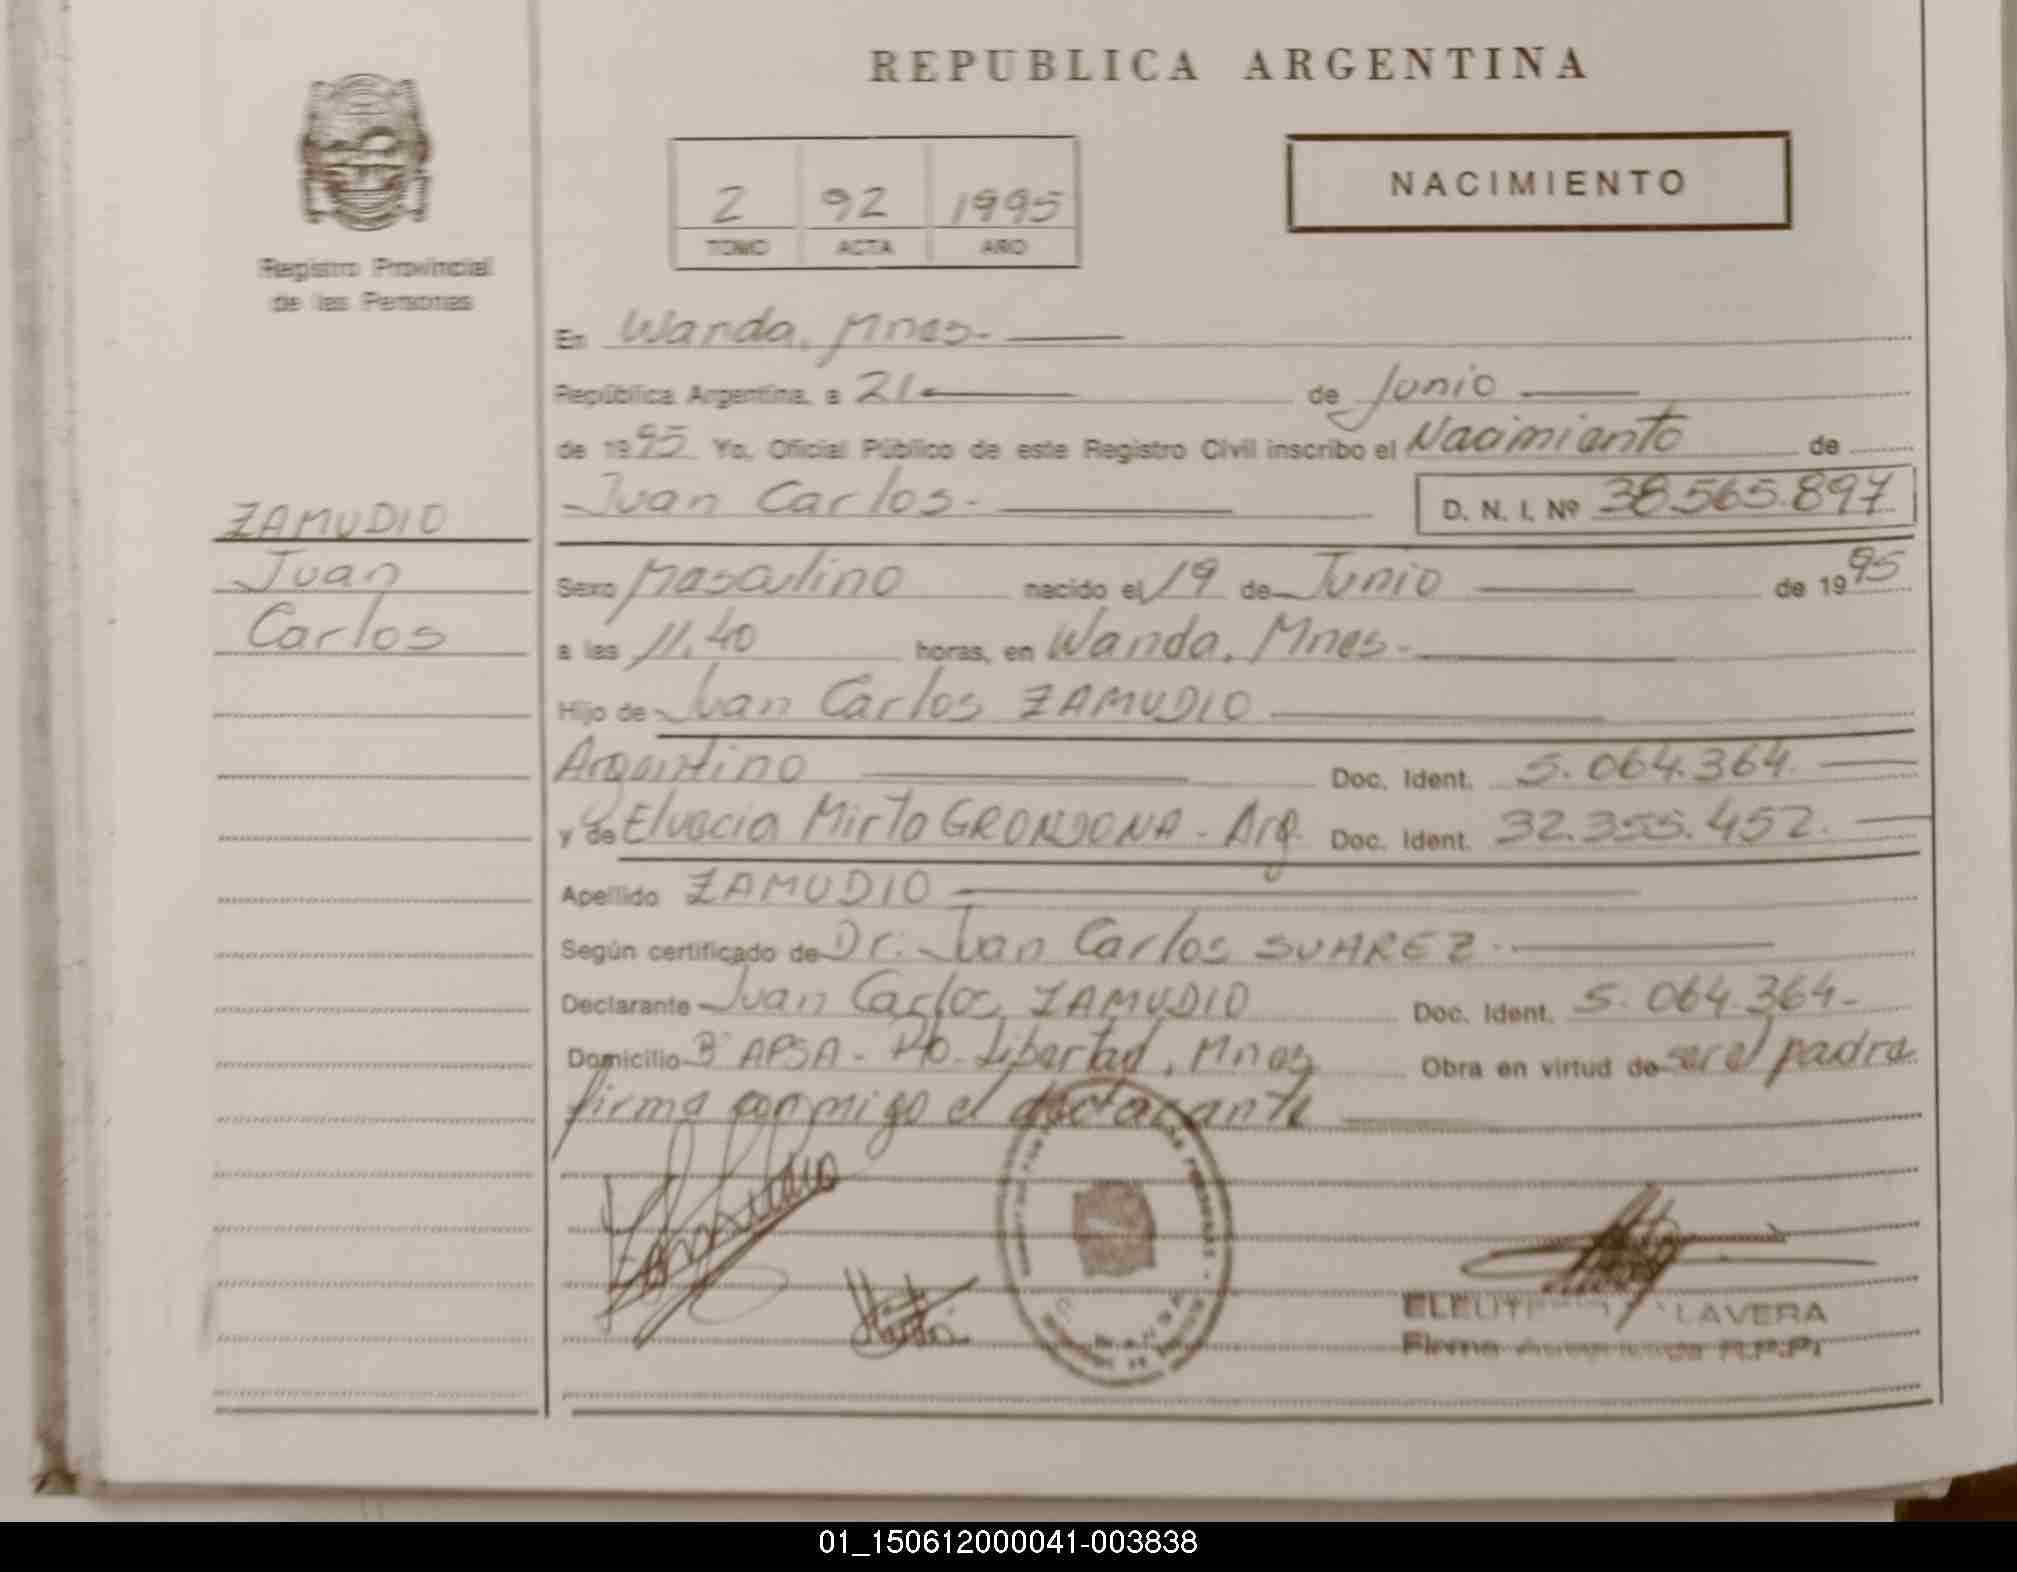 REPUBLICA ARGENTINA
NACIMIENTO
2 92 1995
TOMO ACTA AÑO
Registro Provincial
de las Personas
En Wanda, Mnes.-
República Argentina, a 21 de Junio
de 1995 Yo, Oficial Público de este Registro Civil inscribo el Nacimiento de
Juan Carlos.- D. N. I. Nº 38.565.897
ZAMUDIO
Juan
Carlos
Sexo Masculino nacido el 19 de Junio de 1995
a las 11,40 horas, en Wanda, Mnes.-
Hijo de Juan Carlos ZAMUDIO
Argentino Doc. Ident. 5.064.364.
y de Elvecia Mirta GRONDONA - Arg. Doc. Ident. 32.355.452.
Apellido ZAMUDIO
Según certificado de Dr. Juan Carlos SUAREZ.
Declarante Juan Carlos ZAMUDIO Doc. Ident. 5.064.364-
Domicilio Bº APSA - Pto. Libertad, Mnes Obra en virtud de ser el padre
firma conmigo el declarante
LAVERA
Firma R.P.P.
01_150612000041-003838